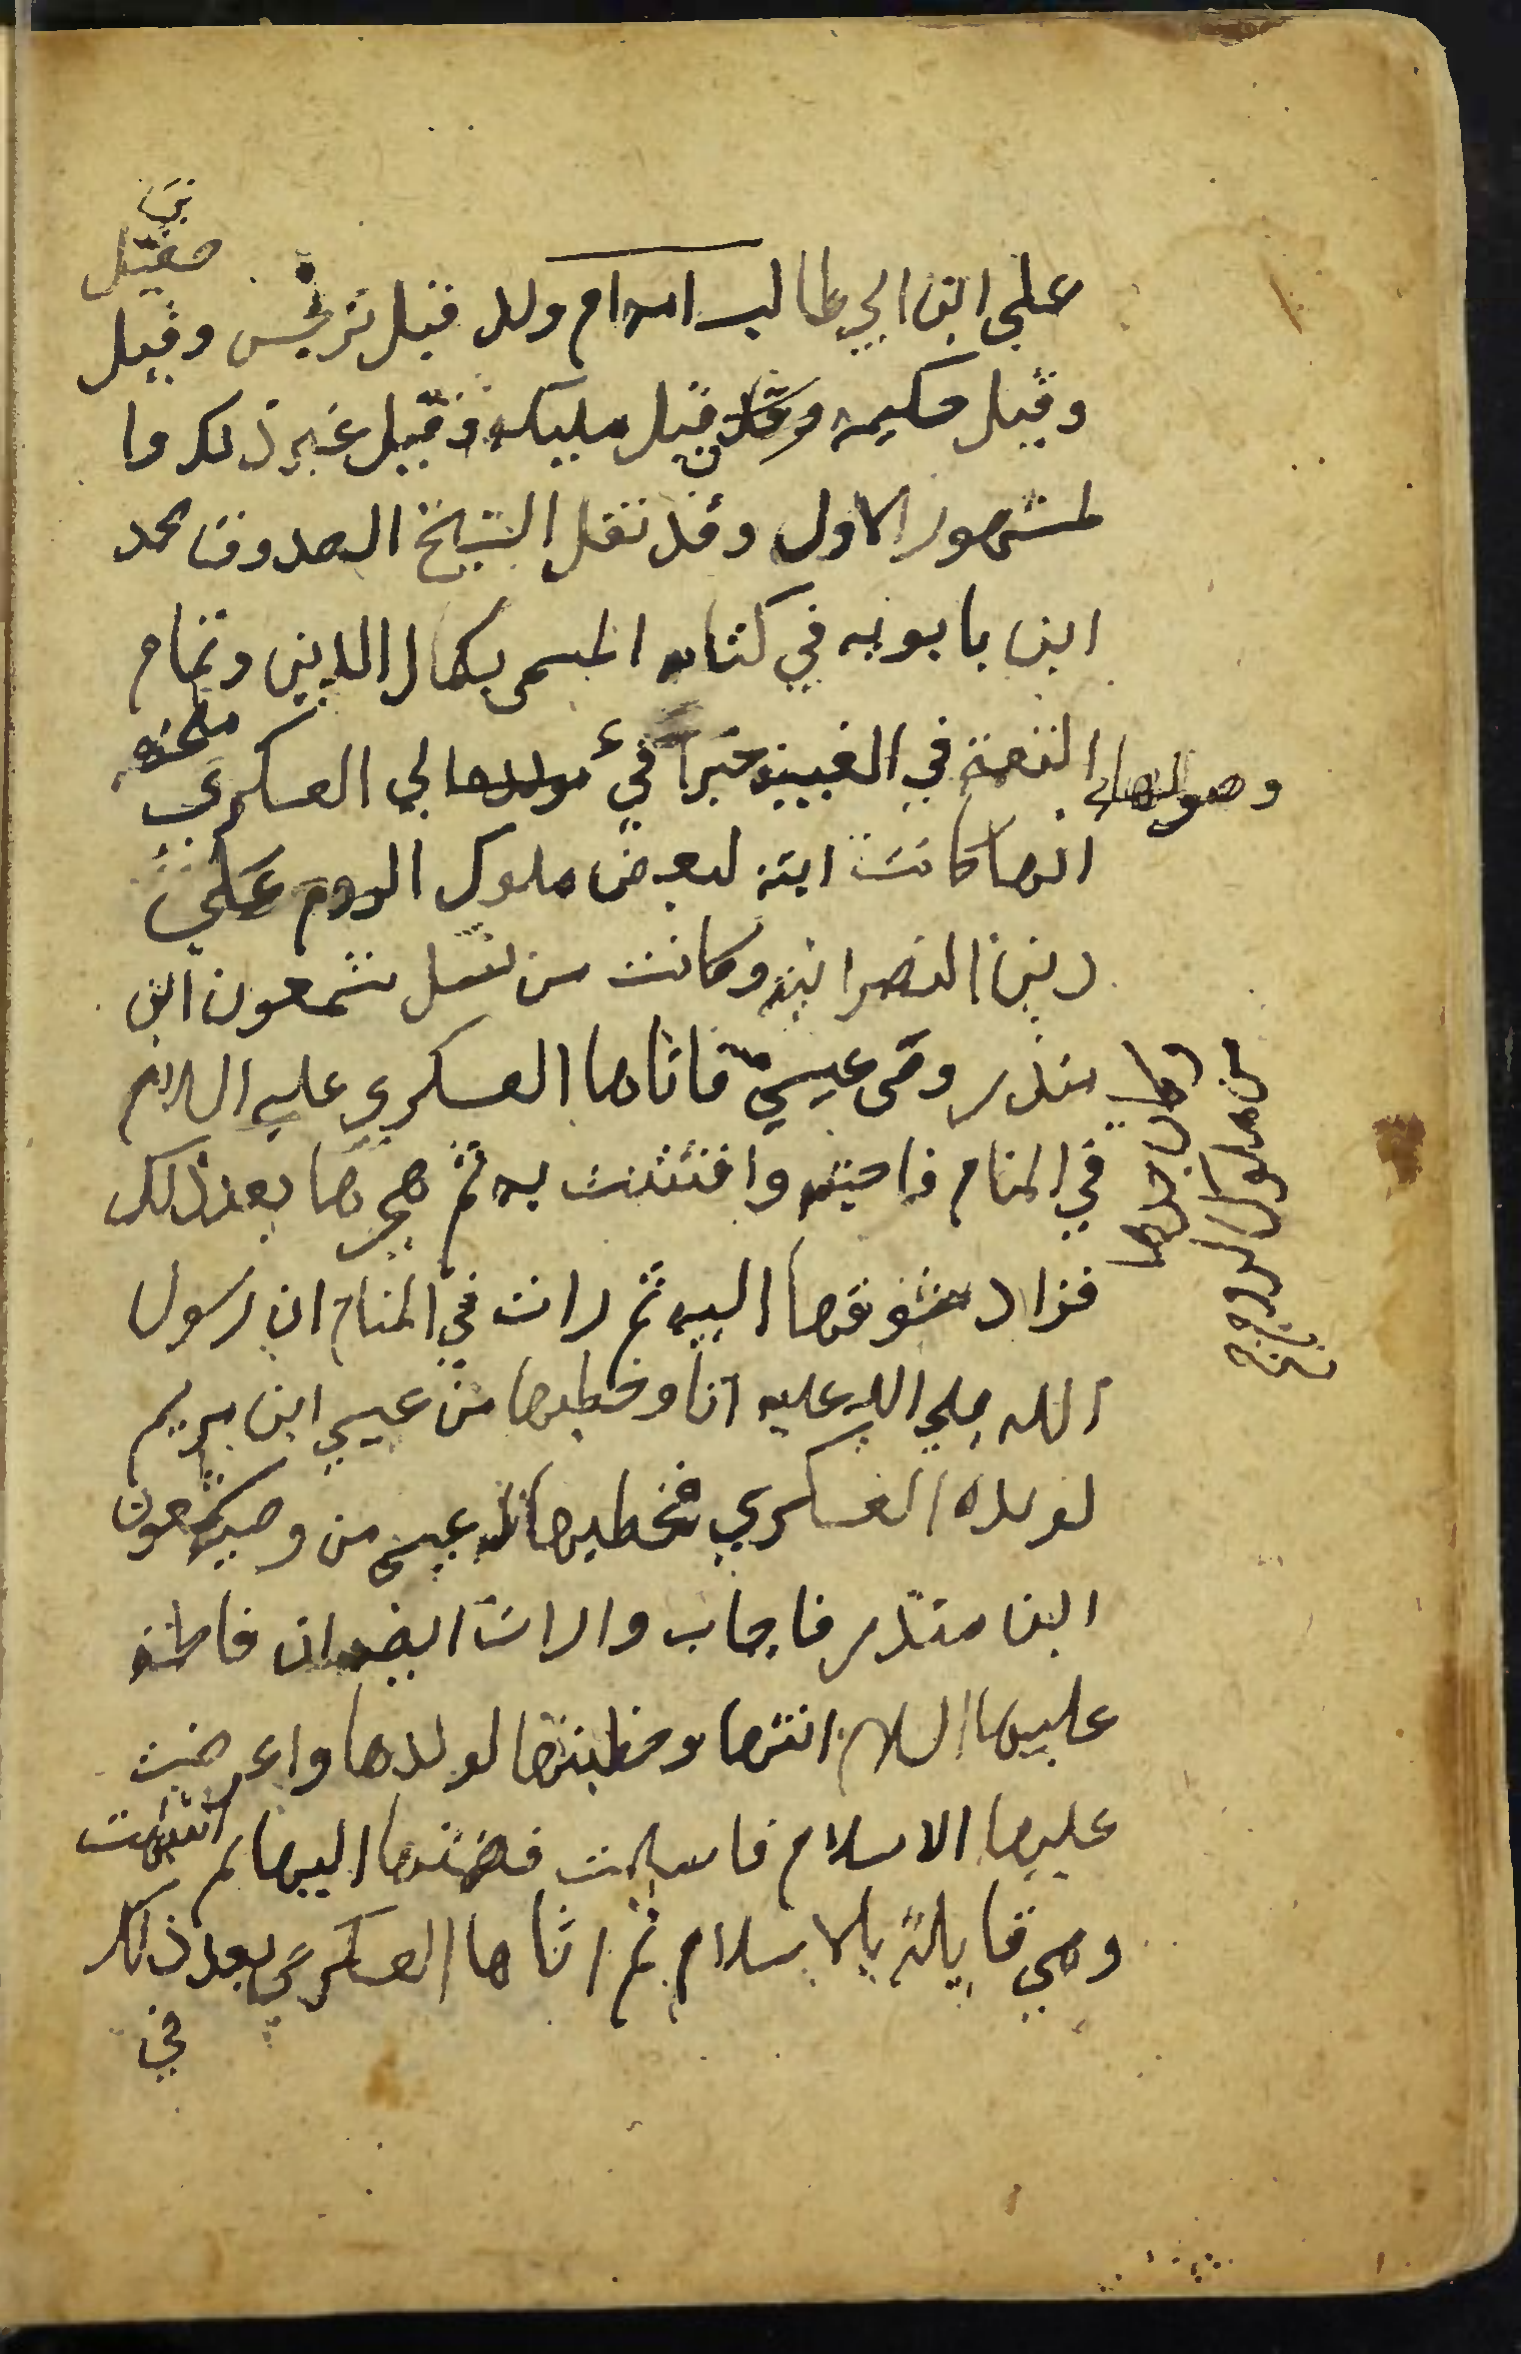 علي ابن ابي طالب ام ولد قيل نرجس وقيل صقيل
وقيل حكيمه وقيل مليكه وقيل غير ذلك وا
لمشهور الاول وقد نقل الشيخ الصدوق محمد
ابن بابويه في كتابه المسمى بكمال الدين وتمام
النعمة في الغيبة خبرا في وصولها الي العسكري ملخصه
انها كانت ابنة لبعض ملوك الروم علي
دين النصرانية وكانت من نسل شمعون ابن
منذر وصى عيسى فاتاها العسكري عليه السلام
في المنام فاحبته وافتتنت به ثم هجرها بعد ذلك
فزاد شوقها اليه ثم رات في المنام ان رسول
الله صلي الله عليه اتا وخطبها من عيسي ابن مريم
لولده العسكري فخطبها عيسى من وصيه شمعون
ابن منذر فاجاب ورات ايضا ان فاطمة
عليها السلام اتتها وخطبتها لولدها واعرضت
عليها الاسلام فاسلمت فضمتها اليها ثم انتبهت
وهي قايلة بالاسلام ثم اتاها العسكري بعد ذلك
في
وكان جدها
من ملوك الروم